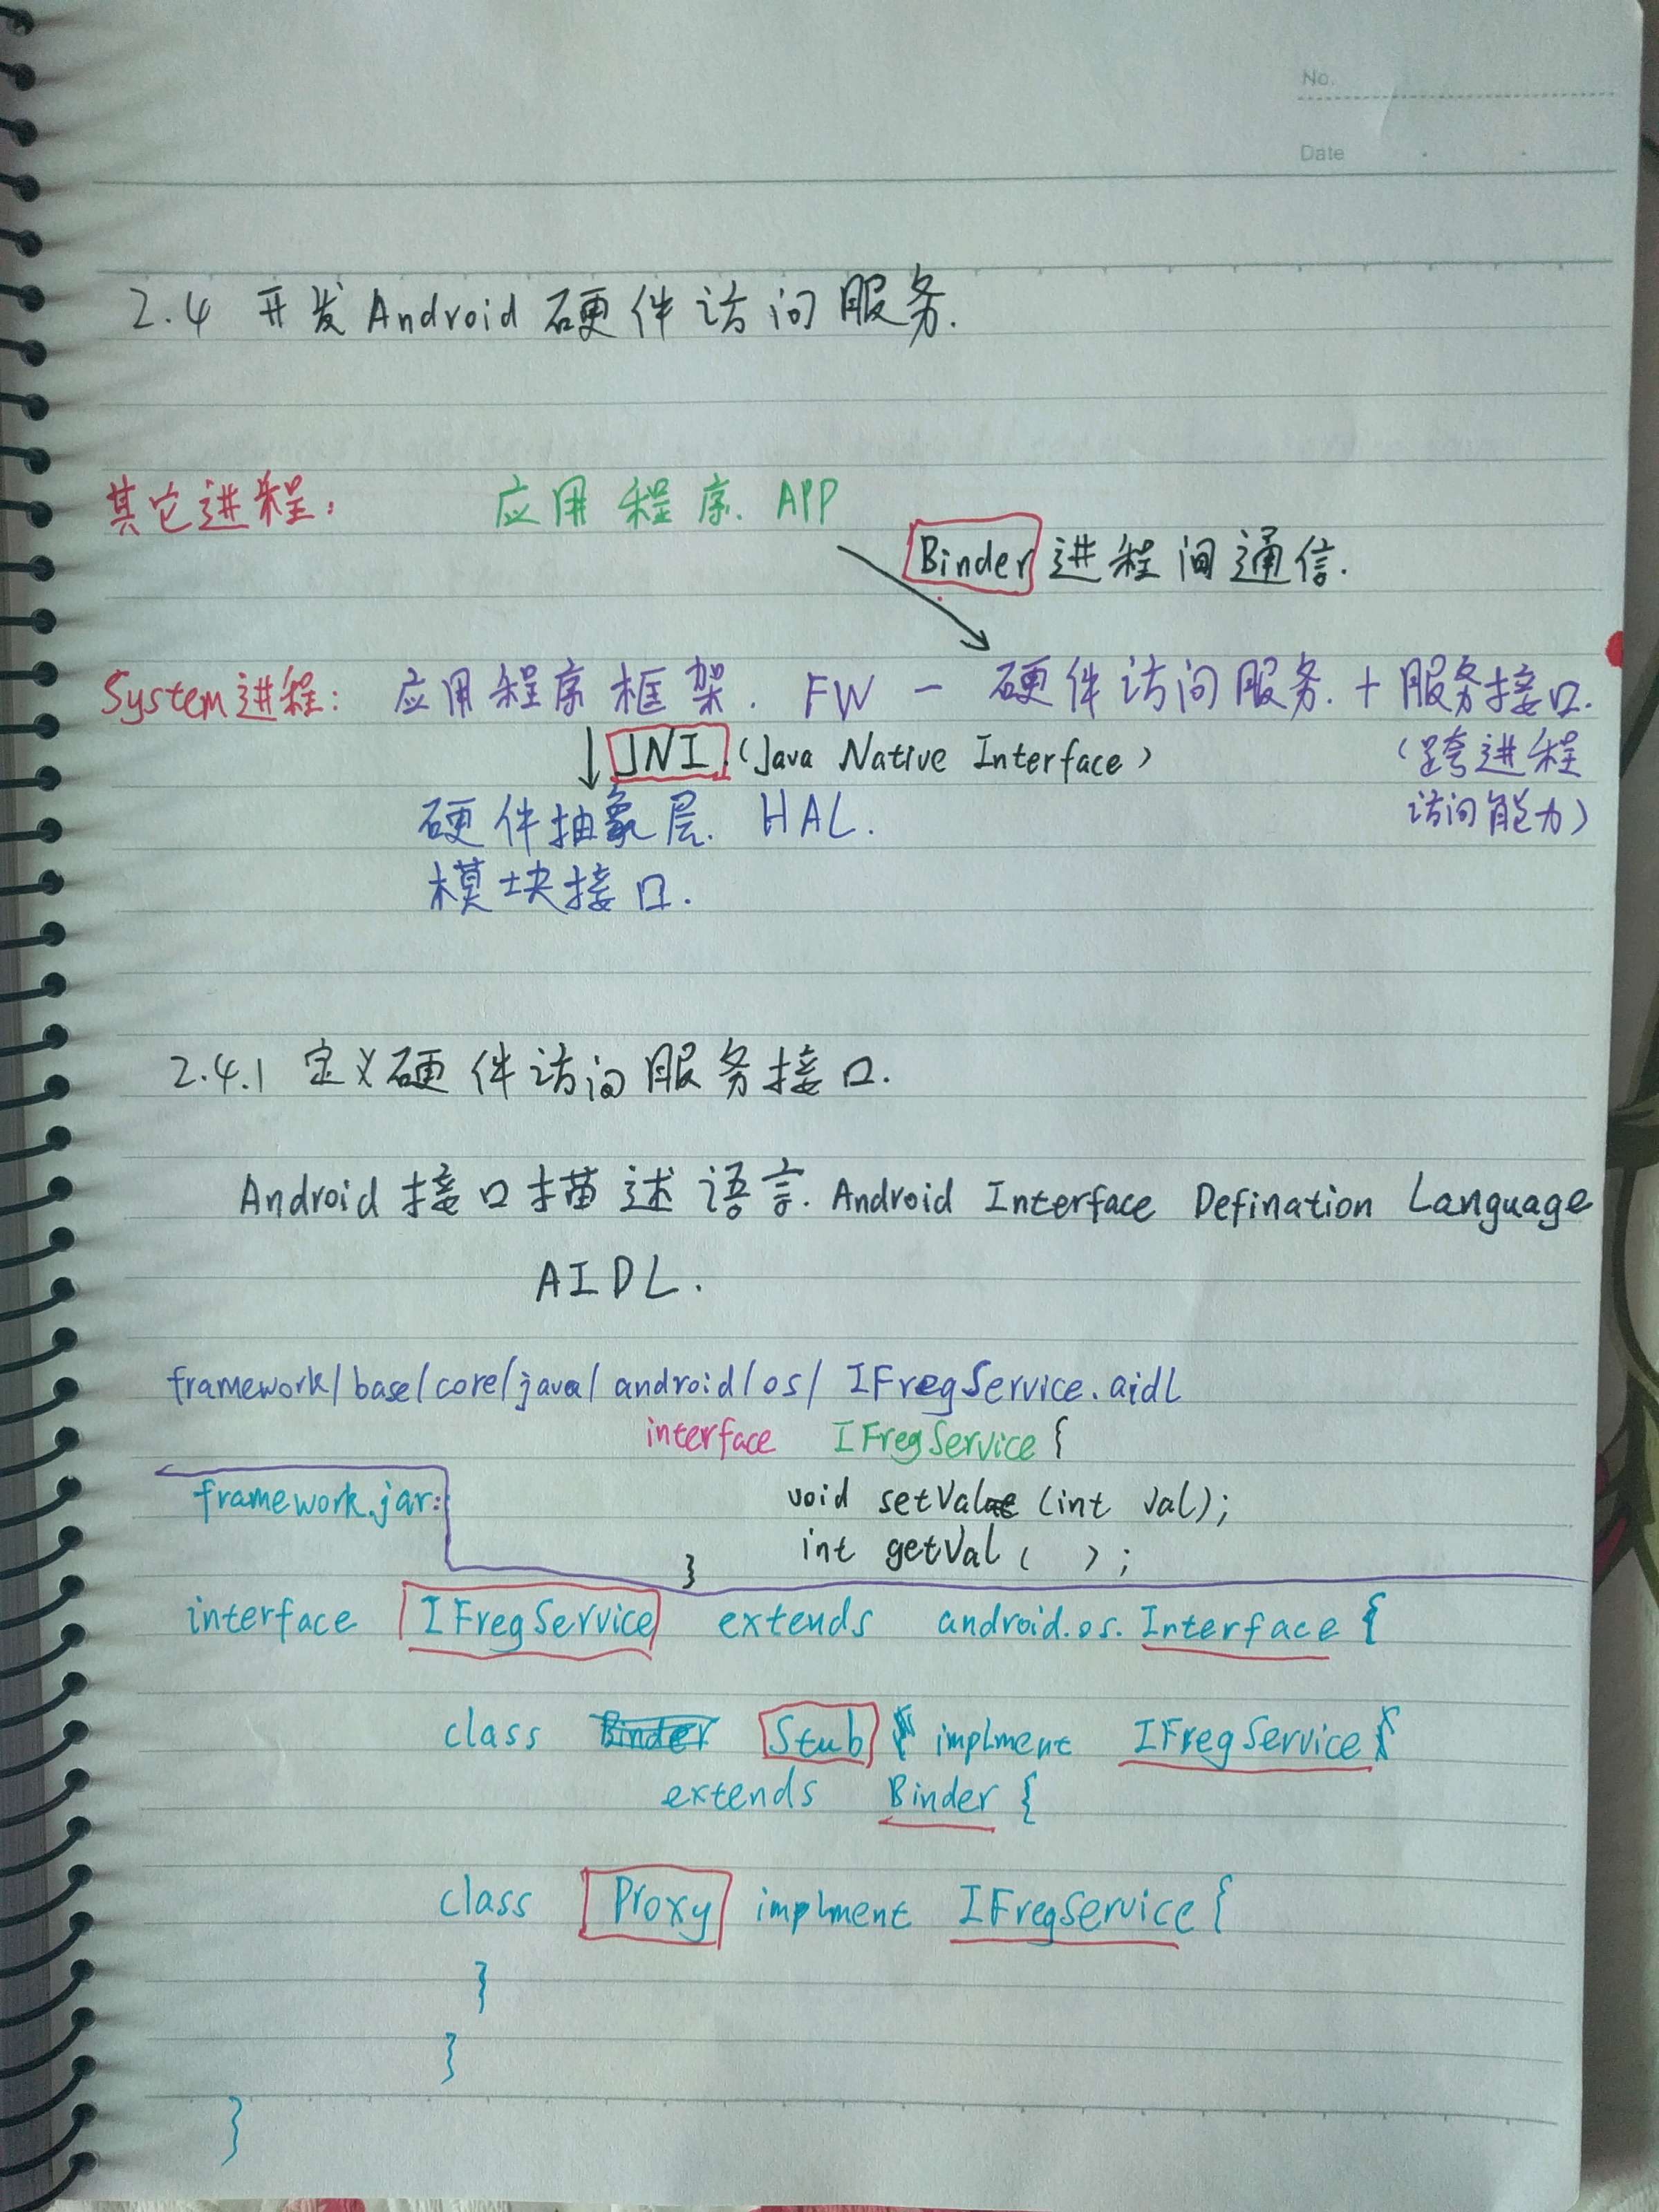 No.
Date
2.4 开发Android硬件访问服务.
其它进程: 应用程序. APP
Binder 进程间通信.
System进程: 应用程序框架. FW - 硬件访问服务. + 服务接口.
JNI. (Java Native Interface) (跨进程
硬件抽象层. HAL. 访问能力)
模块接口.
2.4.1 定义硬件访问服务接口.
Android 接口描述语言. Android Interface Defination Language
AIDL.
framework/base/core/java/android/os/ IFregService.aidl
interface IFregService {
framework.jar: void setVal (int val);
int getVal ( );
}
interface IFregService extends android.os.Interface {
class Binder Stub implment IFregService
extends Binder {
class Proxy implment IFregService {
}
}
}